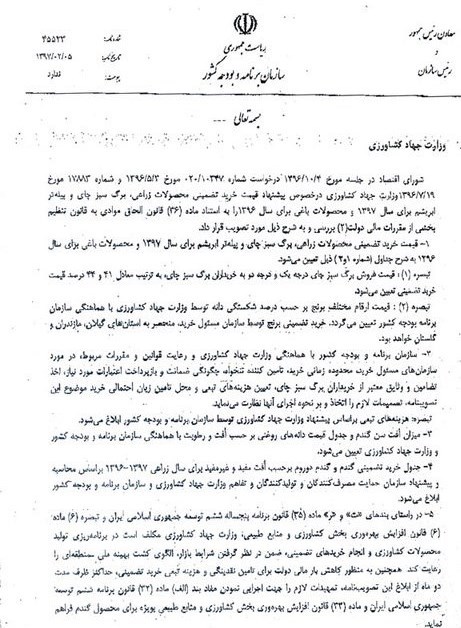 معاون رئیس جمهور
و
رئیس سازمان
ریاست جمهوری
سازمان برنامه و بودجه کشور
شماره نامه: ۴۵۵۲۳
تاریخ نامه: ۱۳۹۷/۰۲/۰۵
پیوست: ندارد
بسمه تعالی
وزارت جهاد کشاورزی
شورای اقتصاد در جلسه مورخ ۱۳۹۶/۱۰/۴ درخواست شماره ۰۲۰/۱۰۳۴۷ مورخ ۱۳۹۶/۵/۳ و شماره ۱۷۸۸۳ مورخ
۱۳۹۶/۷/۱۹ وزارت جهاد کشاورزی درخصوص پیشنهاد قیمت خرید تضمینی محصولات زراعی، برگ سبز چای و پیله‌تر
ابریشم برای سال ۱۳۹۷ و محصولات باغی برای سال ۱۳۹۶ را به استناد ماده (۳۶) قانون الحاق موادی به قانون تنظیم
بخشی از مقررات مالی دولت (۲) بررسی و به شرح ذیل مورد تصویب قرار داد.
۱- قیمت خرید تضمینی محصولات زراعی، برگ سبز چای و پیله‌تر ابریشم برای سال ۱۳۹۷ و محصولات باغی برای سال
۱۳۹۶ به شرح جداول شماره (۱و۲) ذیل تعیین می‌شود.
تبصره (۱): قیمت فروش برگ سبز چای درجه یک و درجه دو به خریداران برگ سبز چای، به ترتیب معادل ۴۱ و ۴۴ درصد قیمت
خرید تضمینی تعیین می‌شود.
تبصره (۲): قیمت ارقام مختلف برنج بر حسب درصد شکستگی دانه توسط وزارت جهاد کشاورزی با هماهنگی سازمان
برنامه و بودجه کشور تعیین می‌گردد. خرید تضمینی برنج توسط سازمان مسئول خرید، منحصر به استان‌های گیلان، مازندران و
گلستان خواهد بود.
۲- سازمان برنامه و بودجه کشور با هماهنگی وزارت جهاد کشاورزی و رعایت قوانین و مقررات مربوطه، در مورد
سازمان‌های مسئول خرید، محدوده زمانی خرید، تامین کننده تنخواه، چگونگی ضمانت و بازپرداخت اعتبارات مورد نیاز، اخذ
تضامین و وثایق معتبر از خریداران برگ سبز چای، تعیین هزینه‌های تبعی و محل تامین زیان احتمالی خرید موضوع این
تصویبنامه، تصمیمات لازم را اتخاذ و بر نحوه اجرای آنها نظارت می‌نماید.
تبصره: هزینه‌های تبعی براساس پیشنهاد وزارت جهاد کشاورزی توسط سازمان برنامه و بودجه کشور ابلاغ می‌شود.
۳- میزان افت سن گندم و جدول قیمت دانه‌های روغنی بر حسب افت و رطوبت با هماهنگی سازمان برنامه و بودجه کشور
و وزارت جهاد کشاورزی تعیین می‌شود.
۴- جدول خرید تضمینی گندم و گندم دوروم برحسب افت مفید و غیرمفید برای سال زراعی ۱۳۹۷-۱۳۹۶ براساس محاسبه
و پیشنهاد سازمان حمایت مصرف‌کنندگان و تولیدکنندگان و تفاهم وزارت جهاد کشاورزی و سازمان برنامه و بودجه کشور
ابلاغ می‌شود.
۵- در راستای بندهای «ث» و «ر» ماده (۳۵) قانون برنامه پنجساله ششم توسعه جمهوری اسلامی ایران و تبصره (۶) ماده
(۶) قانون افزایش بهره‌وری بخش کشاورزی و منابع طبیعی، وزارت جهاد کشاورزی مکلف است در برنامه‌ریزی تولید
محصولات کشاورزی و انجام خریدهای تضمینی، ضمن در نظر گرفتن شرایط بازار، الگوی کشت بهینه ملی منطقه‌ای را
رعایت کند. همچنین به منظور کاهش بار مالی دولت برای تامین نقدینگی و هزینه تبعی خرید تضمینی، حداکثر ظرف مدت
دو ماه از ابلاغ این تصویب‌نامه، تمهیدات لازم را جهت اجرایی نمودن مفاد بند (الف) ماده (۳۲) قانون برنامه ششم توسعه
جمهوری اسلامی ایران و ماده (۳۳) قانون افزایش بهره‌وری بخش کشاورزی و منابع طبیعی بویژه برای محصول گندم فراهم
نماید.